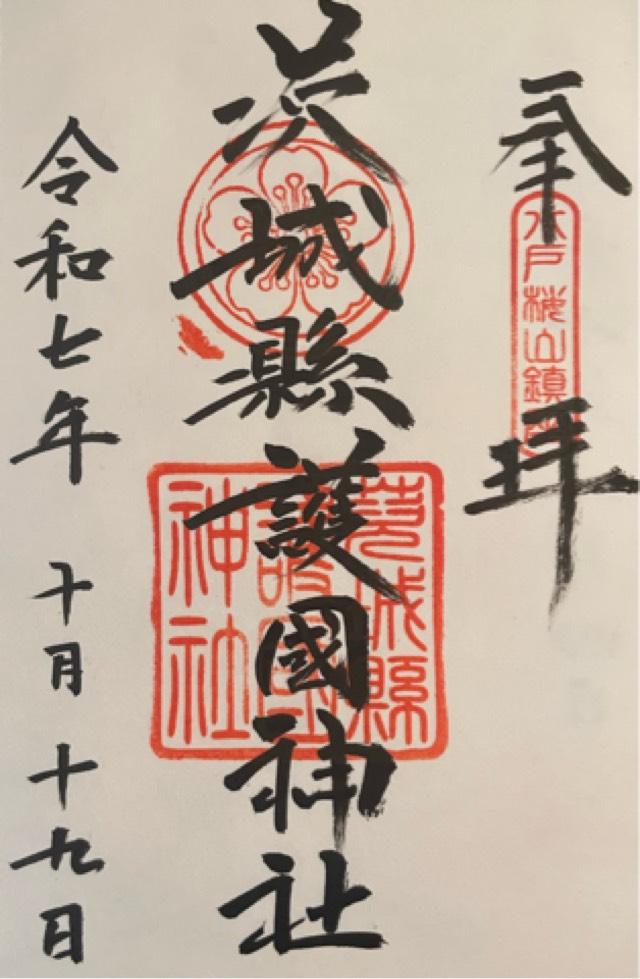 奉拝
水戸桜山鎮座
茨城縣護國神社
茨城縣
護國
神社
令和七年 十月 十九日